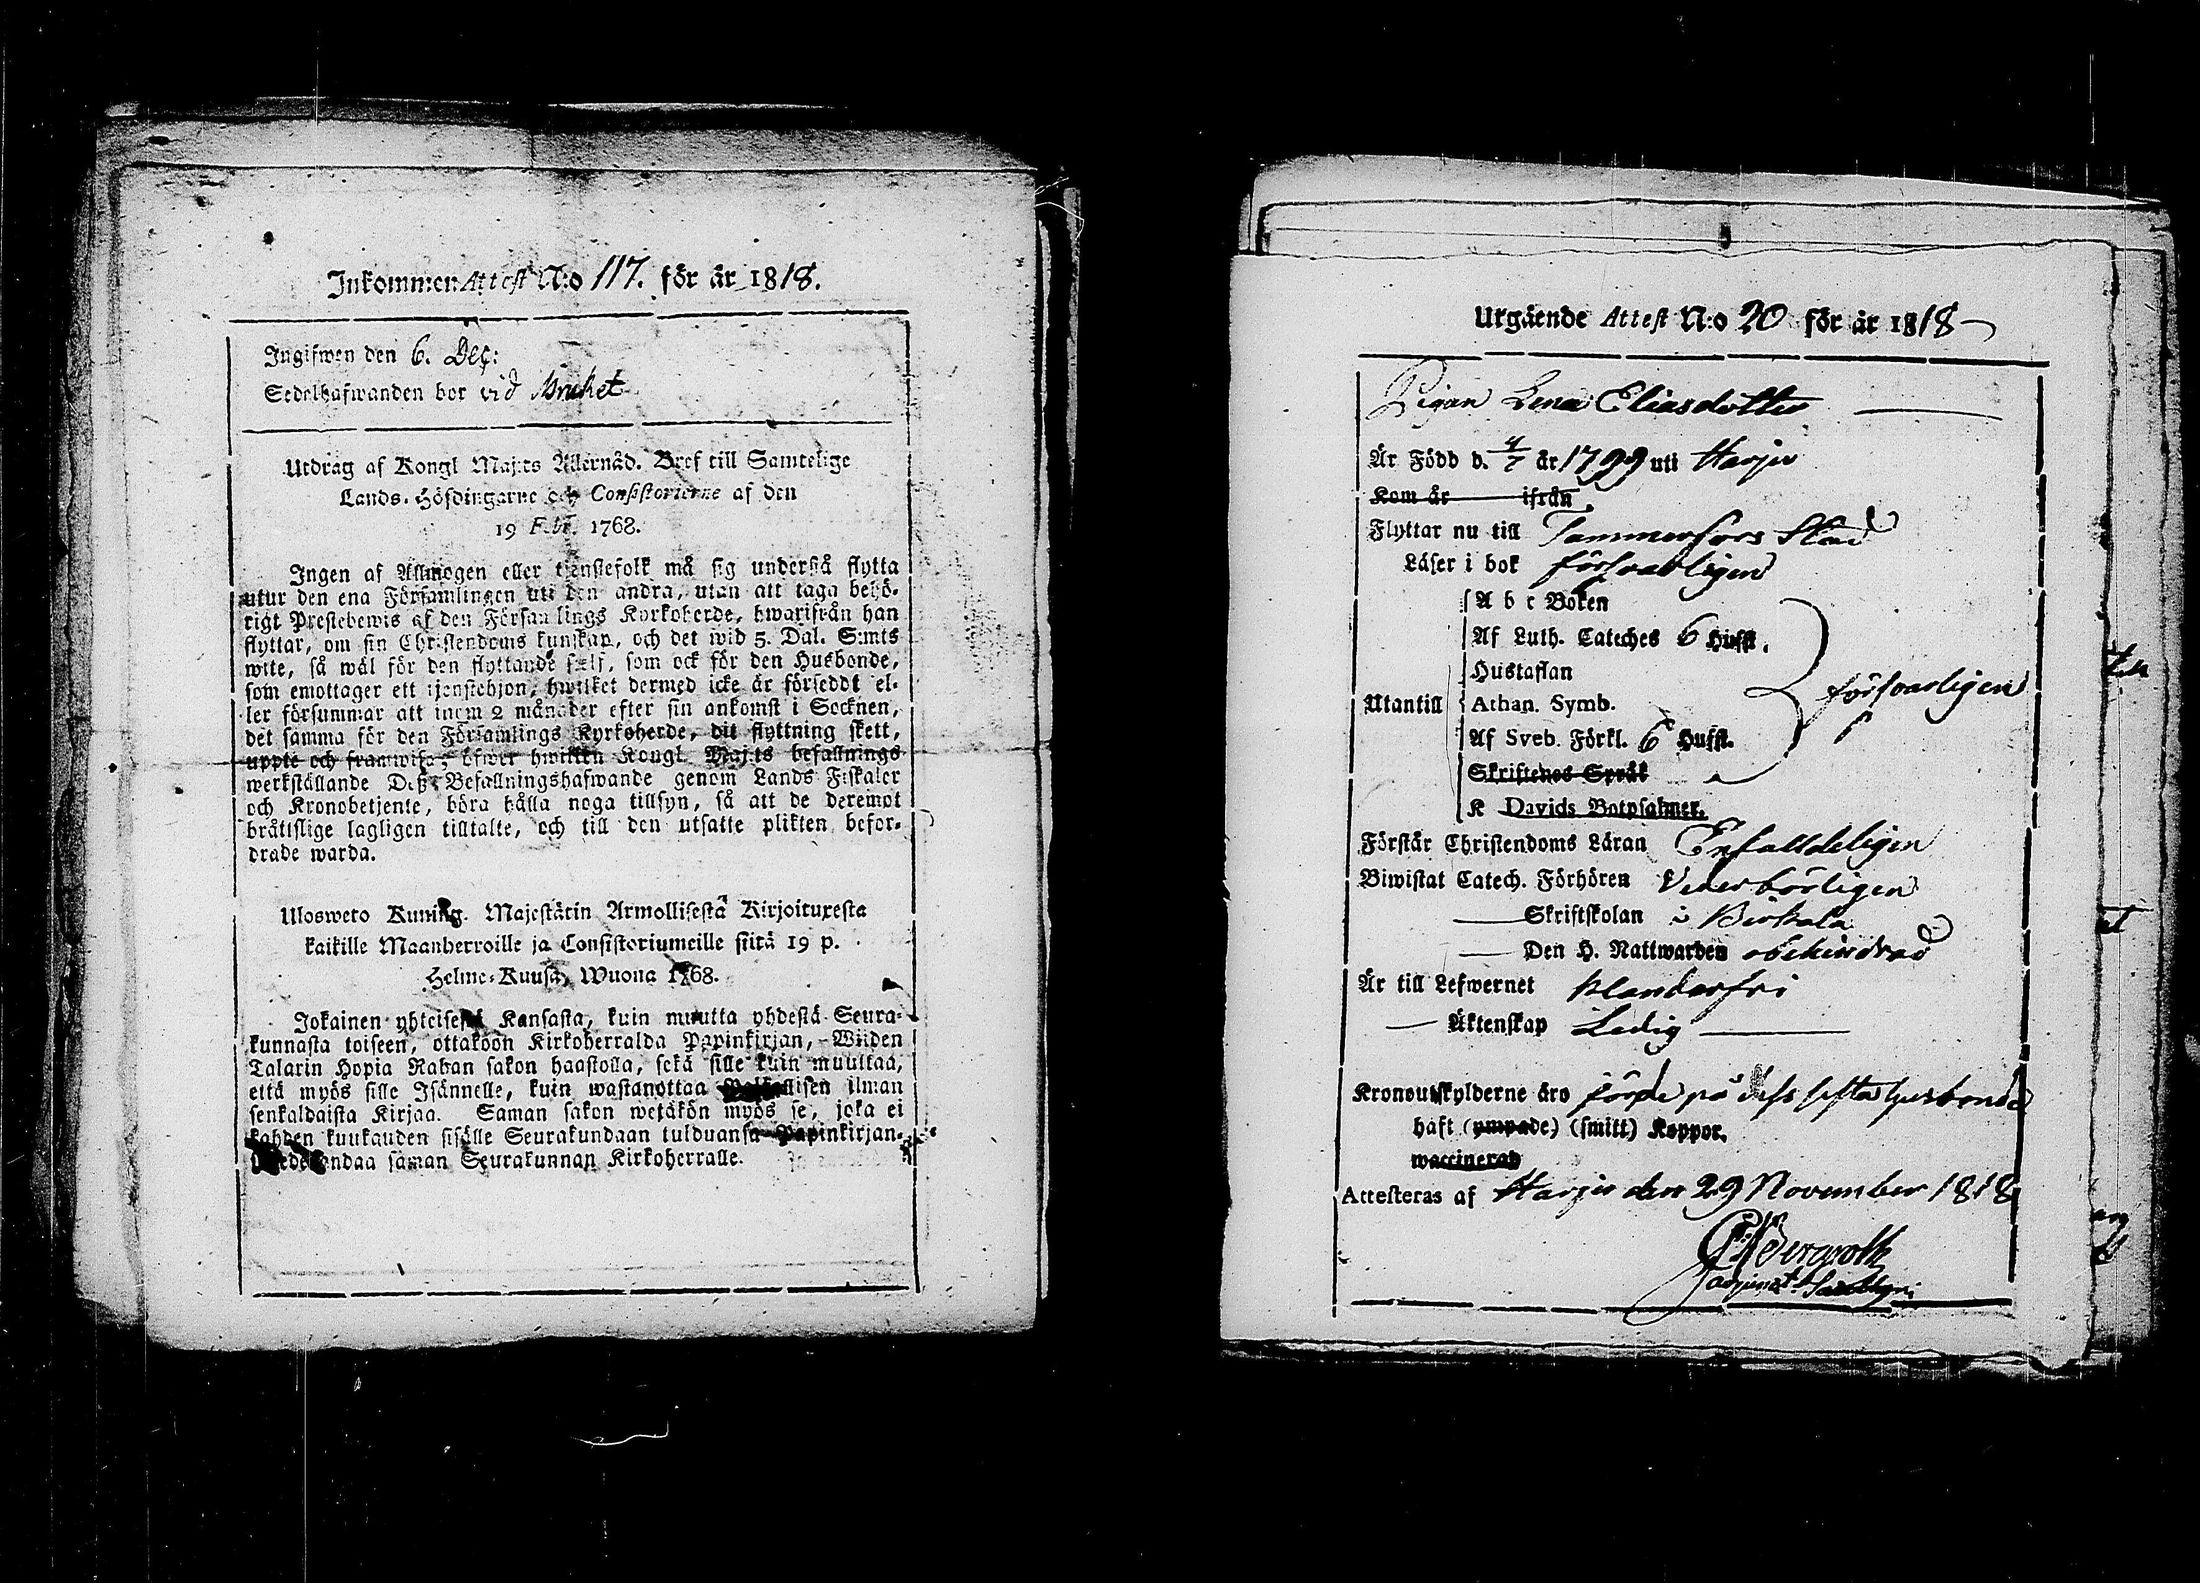 Inkommen Attest N:o 117. för år 1818.
Ingifwen den 6. Dec:
Sedelhafwanden bor vid Bruket
Utdrag af Kongl Maj:ts Allernåd. Bref till Samtelige
Lands-Höfdingarne och Consistorierne af den
19 Febr. 1768.
Ingen af Allmogen eller tjenstefolk må sig understå flytta
utur den ena Församlingen uti den andra, utan att taga behö-
rigt Prestebewis af den Församlings Kyrkoherde, hwarifrån han
flyttar, om sin Christendoms kunskap, och det wid 5. Dal. S:mts
wite, så wäl för den flyttande sielf, som ock för den Husbonde,
som emottager ett tjenstehjon, hwilket dermed icke är försedt el-
ler försummar att inom 2 månader efter sin ankomst i Socknen,
det samma för den Församlings Kyrkoherde, dit flyttning skett,
uppte och framwisa; öfwer hwilken Kongl Maj:ts befallnings
werkställande Deß Befallningshafwande genom Lands Fiskaler
och Kronobetjente, böra hålla noga tillsyn, så att de deremot
bråttslige lagligen tilltalte, och till den utsatte plikten befor-
drade warda.
Ulosweto Kuning. Majestätin Armollisestä Kirjoituxesta
kaikille Maanherroille ja Consistoriumeille siitä 19 p.
Helme-Kuusa, Wuona 1768.
Jokainen yhteisestä Kansasta, kuin muutta yhdestä Seura-
kunnasta toiseen, ottakoon Kirkoherralda Papinkirjan, Wiiden
Talarin Hopia Rahan sakon haastolla, sekä sille kuin muuttaa,
että myös sille Isännelle, kuin wastanottaa Palkollisen ilman
senkaldaista Kirjaa. Saman sakon wetäkön myös se, joka ei
kahden kuukauden sisälle Seurakundaan tulduansa Papinkirjan-
saman Seurakunnan Kirkoherralle.
Utgående Attest N:o 20 för år 1818
Pigan Lena Eliasdotter
Är Född d. 4/7 år 1799 uti Harju
Kom år ifrån
Flyttar nu till Tammerfors Stad
Läser i bok försvarligen
A b c Boken
Af Luth. Cateches 6 Hufst.
Hustaflan
Utantill Athan. Symb. försvarligen
Af Sveb. Förkl. 6 Hufst.
Skriftenes Språk
K Davids Botpsalmer.
Förstår Christendoms Läran Enfalldeligen
Biwistat Catech. Förhören Vederbörligen
Skriftskolan i Birkala
Den H. Nattwarden obehindrad
Är till Lefwernet klanderfri
Äktenskap Ledig
Kronoutskylderne äro förde på dess sista husbonde
haft (ympade) (smitt) Koppor.
waccinerad
Attesteras af Harju den 29 November 1818
Bergroth
adjunct.